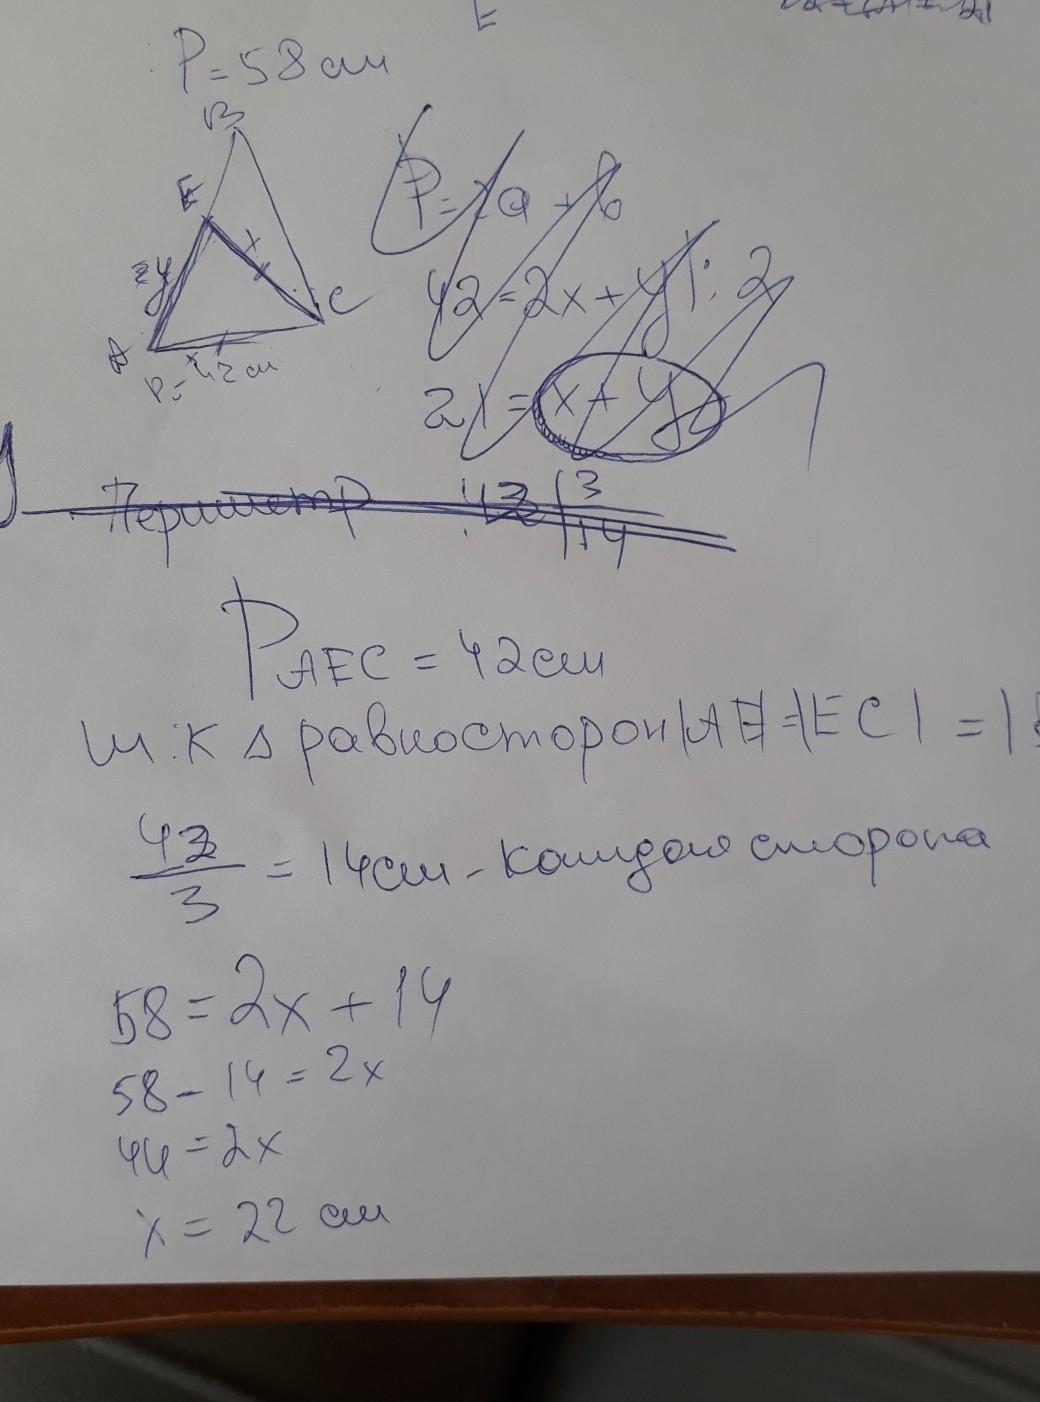 P=58 см
B
E
x
2y
C
A
x
P=42 см
P=2a+b
42=2x+y |:2
21=x+y
Периметр 42 | 3
14
P AEC = 42 см
т.к Δ равносторон |AE|=|EC| = |
42/3 = 14 см - каждая сторона
58=2x+14
58-14=2x
44=2x
x=22 см